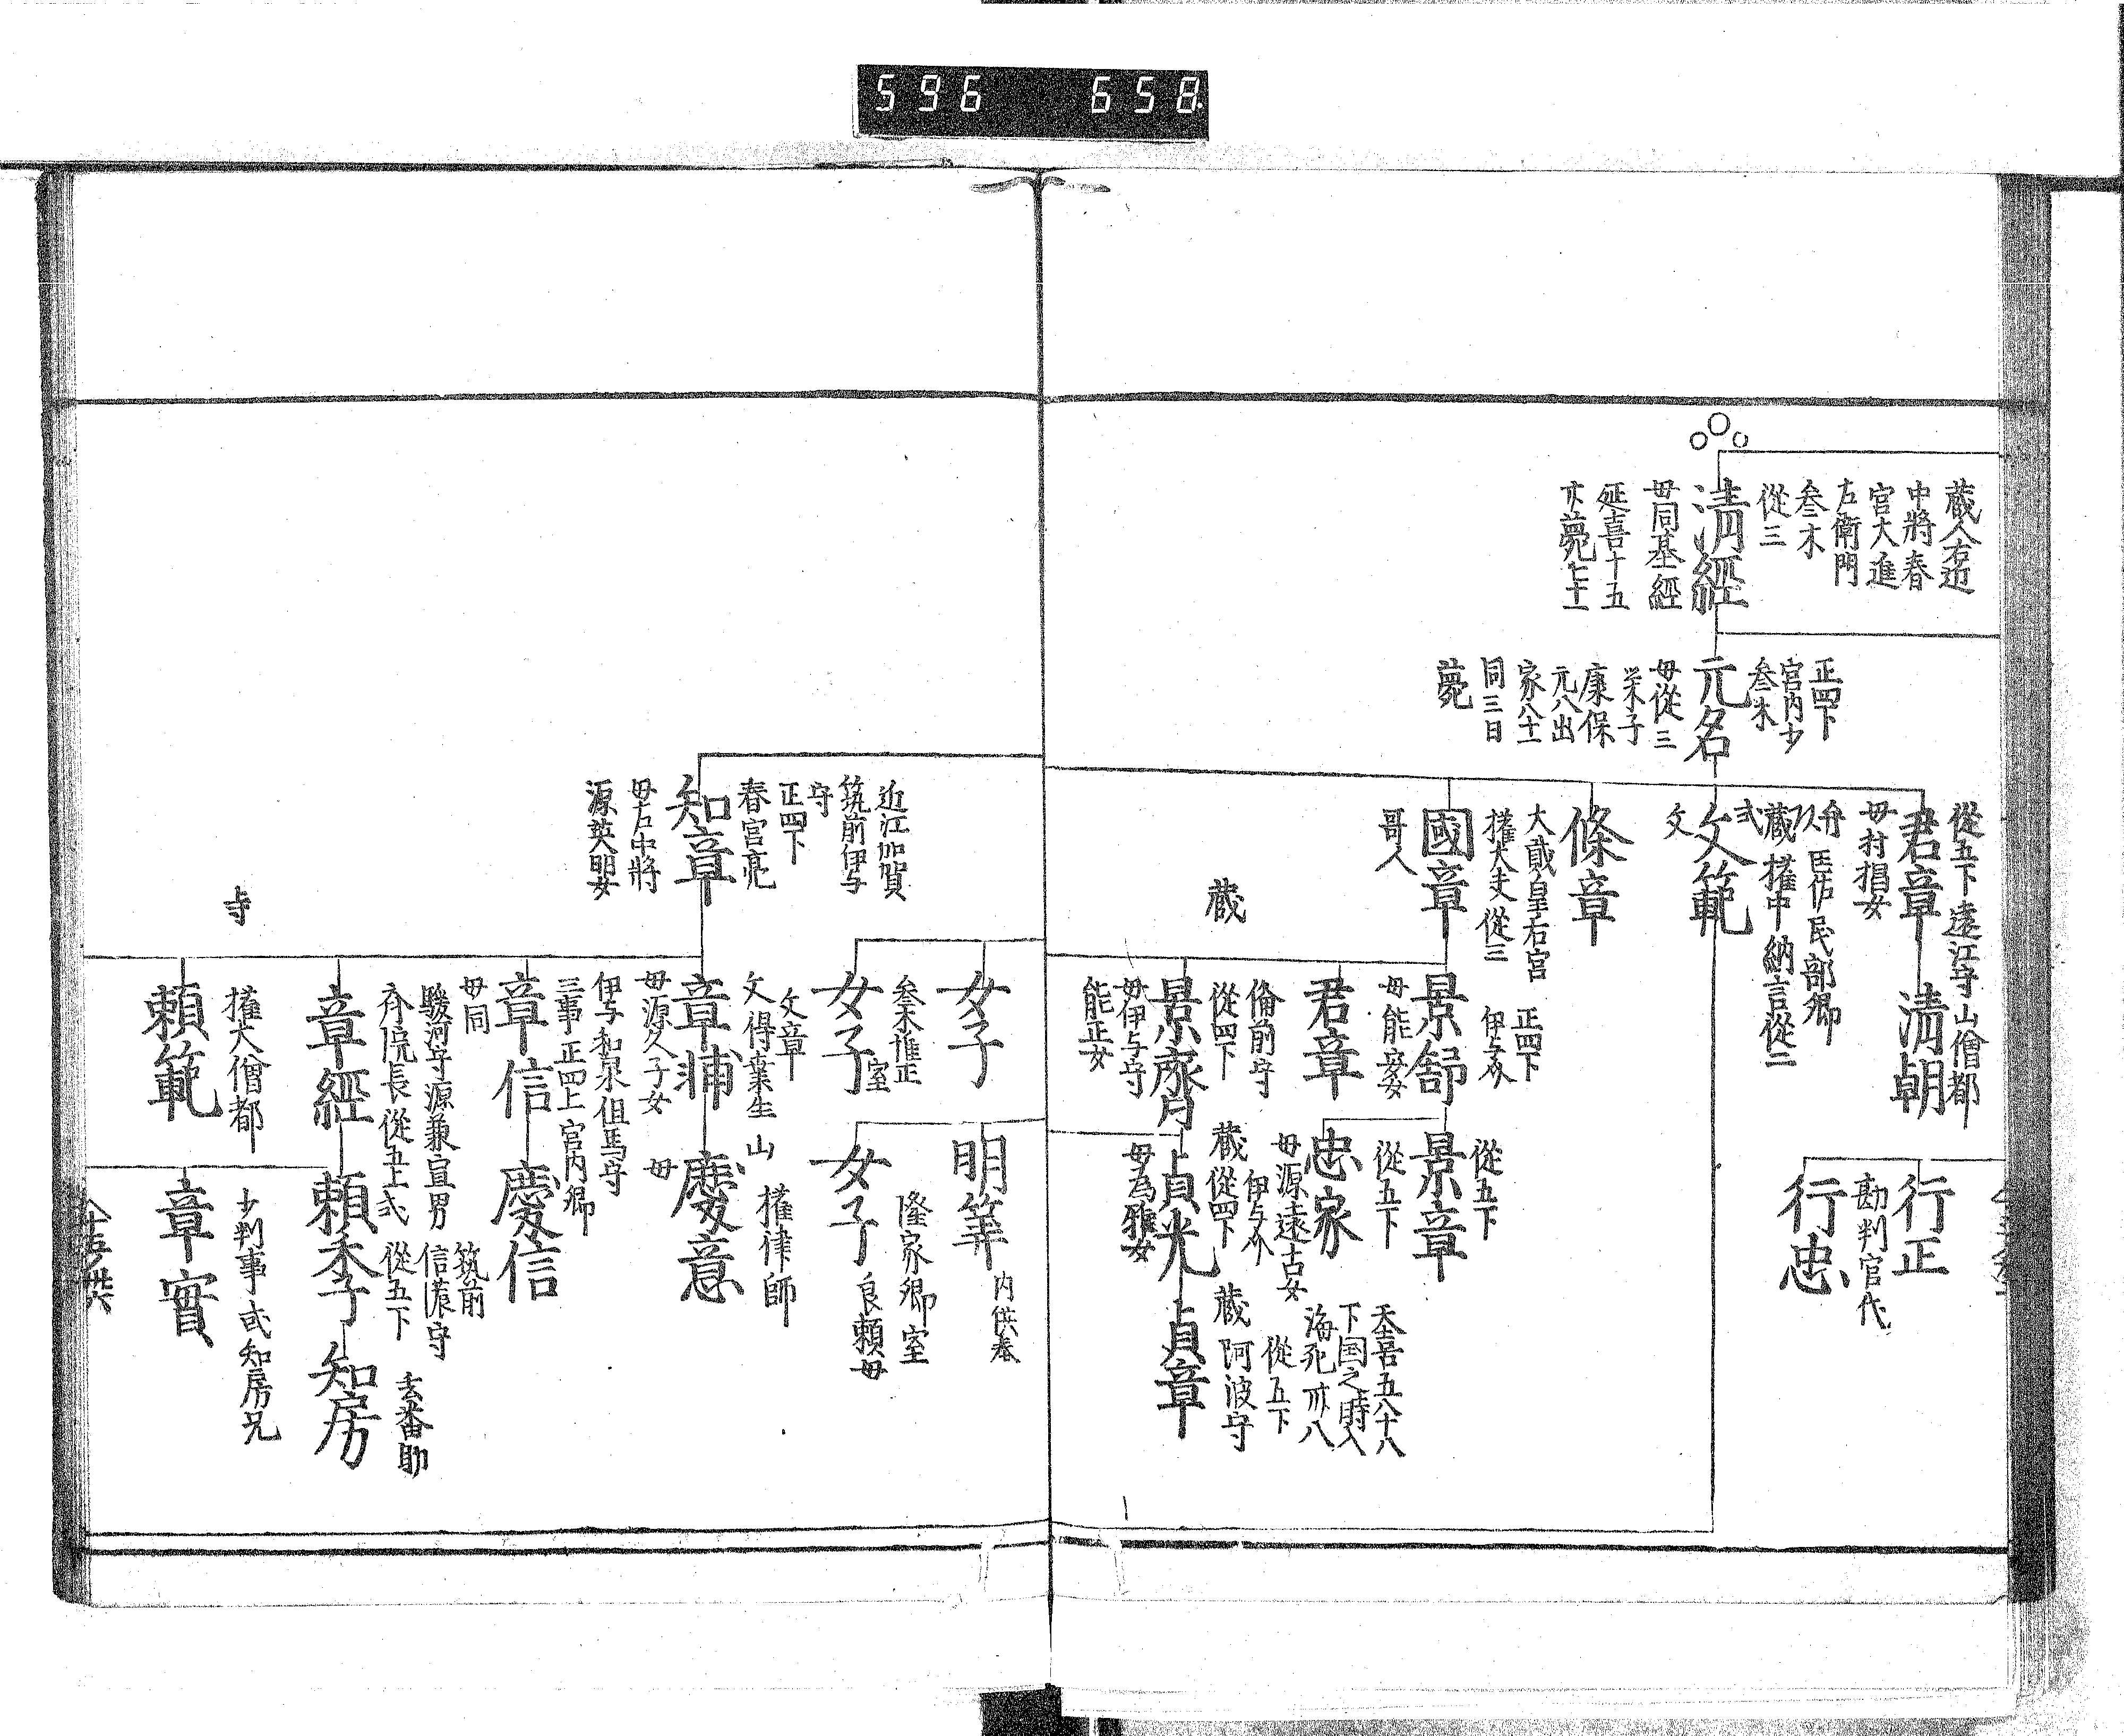 596 658
蔵人右近
中將春
宮大進
左衛門
叅木
從三
清經
母同基經
延喜十五
薨七十一
正四下
宮内少
叅木
元名
母從三
栄子
康保
元八出
家八十一
同三日
薨
從五下遠江守
君章
母村揖女
山僧都
清朝
行正
勘判官代
行忠
弁
民部卿
蔵 権中納言從二
式
文範
文
條章
大貳皇右宮
権大夫從三
國章
哥人
正四下
伊与介
景舒
母能安女
從五下
景章
君章
從五下
忠家
母源遠古女
天喜五八十八
下国之時入
海死
蔵
備前守
從四下
景齊
母伊与守
能正女
蔵從四下
伊与介
貞光
母為雅女
從五下
蔵 阿波守
貞章
女子
明筭
内供奉
叅木惟正
室
女子
隆家卿室
女子
良頼母
近江加賀
筑前伊与
守
正四下
春宮亮
知章
母左中將
源英明女
文章
文得業生
章輔
母源久子女
山 権律師
慶意
母
伊与和泉但馬守
三事正四上宮内卿
章信
母同
慶信
駿河守源兼宣男
斉院長從五上式
章經
筑前
信濃守
從五下
頼季子
玄蕃助
知房
少判事式知房兄
章實
寺
権大僧都
頼範